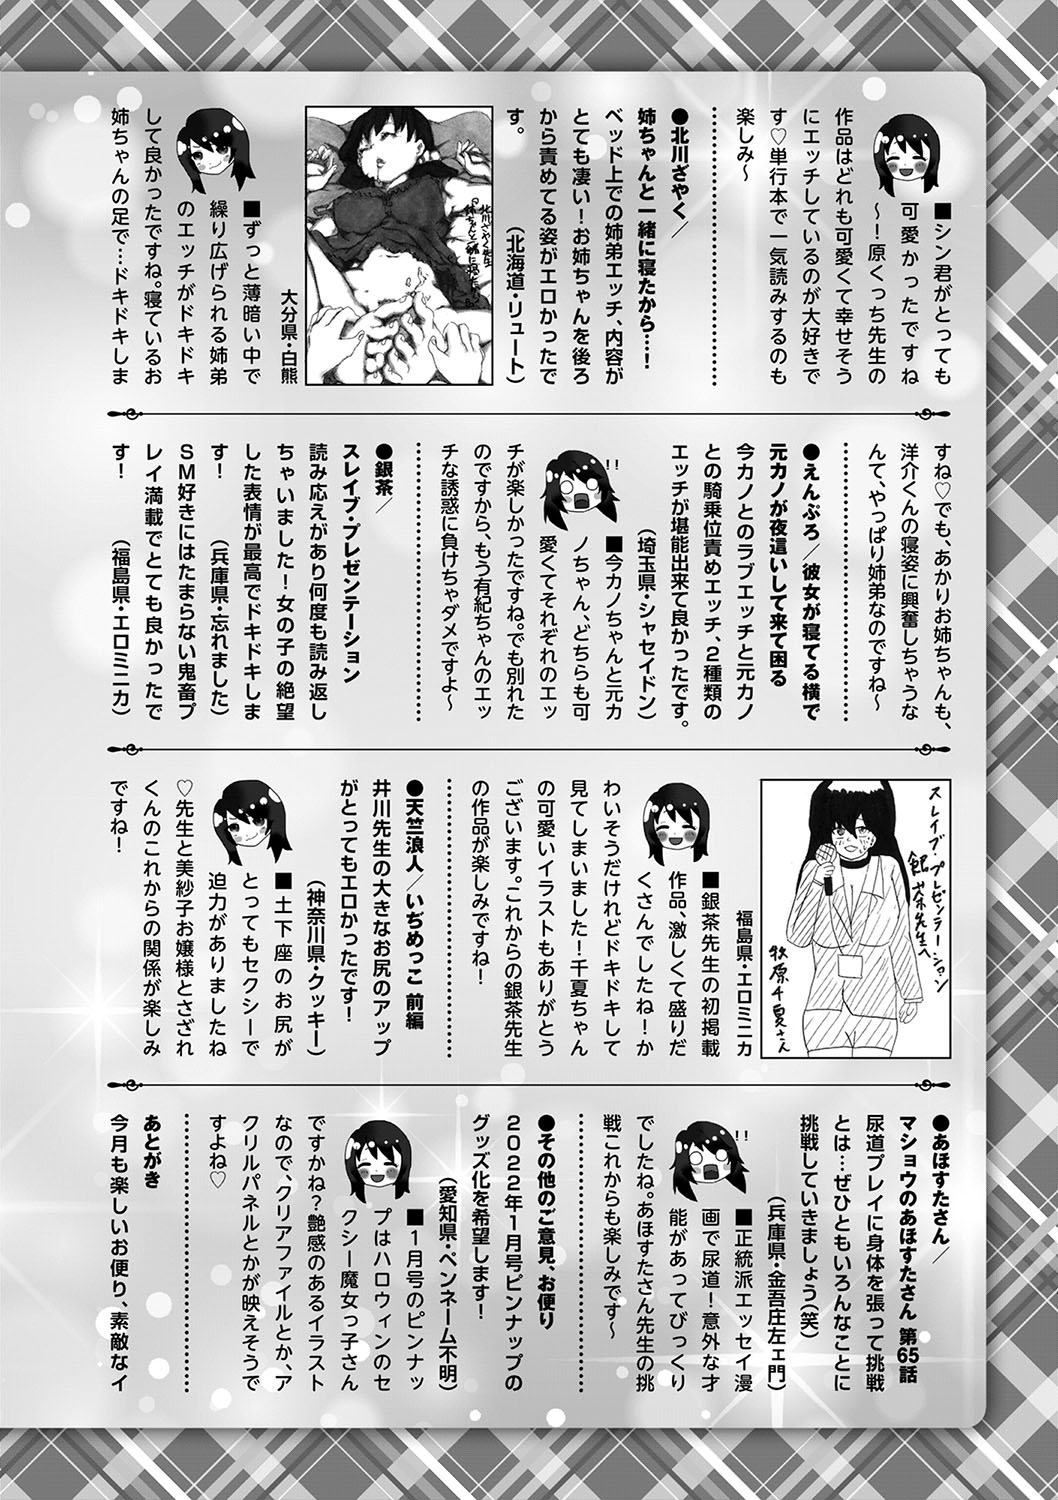 ■シン君がとっても
可愛かったですね
～！原くっち先生の
作品はどれも可愛くて幸せそう
にエッチしているのが大好きで
す♡単行本で一気読みするのも
楽しみ～
●北川ざやく／
姉ちゃんと一緒に寝たから…！
ベッド上での姉弟エッチ、内容が
とても凄い！お姉ちゃんを後ろ
から責めてる姿がエロかったで
す。
（北海道・リュート）
北川ざやく先生
大分県・白熊
■ずっと薄暗い中で
繰り広げられる姉弟
のエッチがドキドキ
して良かったですね。寝ているお
姉ちゃんの足で…ドキドキしま
すね♡でも、あかりお姉ちゃんも、
洋介くんの寝姿に興奮しちゃうな
んて、やっぱり姉弟なのですね～
●えんぶろ／彼女が寝てる横で
元カノが夜這いして来て困る
今カノとのラブエッチと元カノ
との騎乗位責めエッチ、2種類の
エッチが堪能出来て良かったです。
（埼玉県・シャセイドン）
!!
■今カノちゃんと元カ
ノちゃん、どちらも可
愛くてそれぞれのエッ
チが楽しかったですね。でも別れた
のですから、もう有紀ちゃんのエッ
チな誘惑に負けちゃダメですよ～
●銀茶／
スレイブ・プレゼンテーション
読み応えがあり何度も読み返し
ちゃいました！女の子の絶望
した表情が最高でドキドキしま
す！
（兵庫県・忘れました）
SM好きにはたまらない鬼畜プ
レイ満載でとても良かったで
す！
（福島県・エロミニカ）
スレイブ・プレゼンテーション
銀茶先生へ
牧原千夏さん
福島県・エロミニカ
■銀茶先生の初掲載
作品、激しくて盛りだ
くさんでしたね！か
わいそうだけれどドキドキして
見てしまいました！千夏ちゃん
の可愛いイラストもありがとう
ございます。これからの銀茶先生
の作品が楽しみですね！
●天竺浪人／いぢめっこ 前編
井川先生の大きなお尻のアップ
がとってもエロかったです！
（神奈川県・クッキー）
■土下座のお尻が
とってもセクシーで
迫力がありましたね
♡先生と美紗子お嬢様とさざれ
くんのこれからの関係が楽しみ
ですね！
●あほすたさん／
マショウのあほすたさん 第65話
尿道プレイに身体を張って挑戦
とは…ぜひともいろんなことに
挑戦していきましょう(笑)
（兵庫県・金吾庄左ェ門）
!!
■正統派エッセイ漫
画で尿道！意外な才
能があってびっくり
でしたね。あほすたさん先生の挑
戦これからも楽しみです～
●その他のご意見、お便り
2022年1月号ピンナップの
グッズ化を希望します！
（愛知県・ペンネーム不明）
■1月号のピンナッ
プはハロウィンのセ
クシー魔女っ子さん
ですかね？艶感のあるイラスト
なので、クリアファイルとか、ア
クリルパネルとかが映えそうで
すよね♡
あとがき
今月も楽しいお便り、素敵なイ